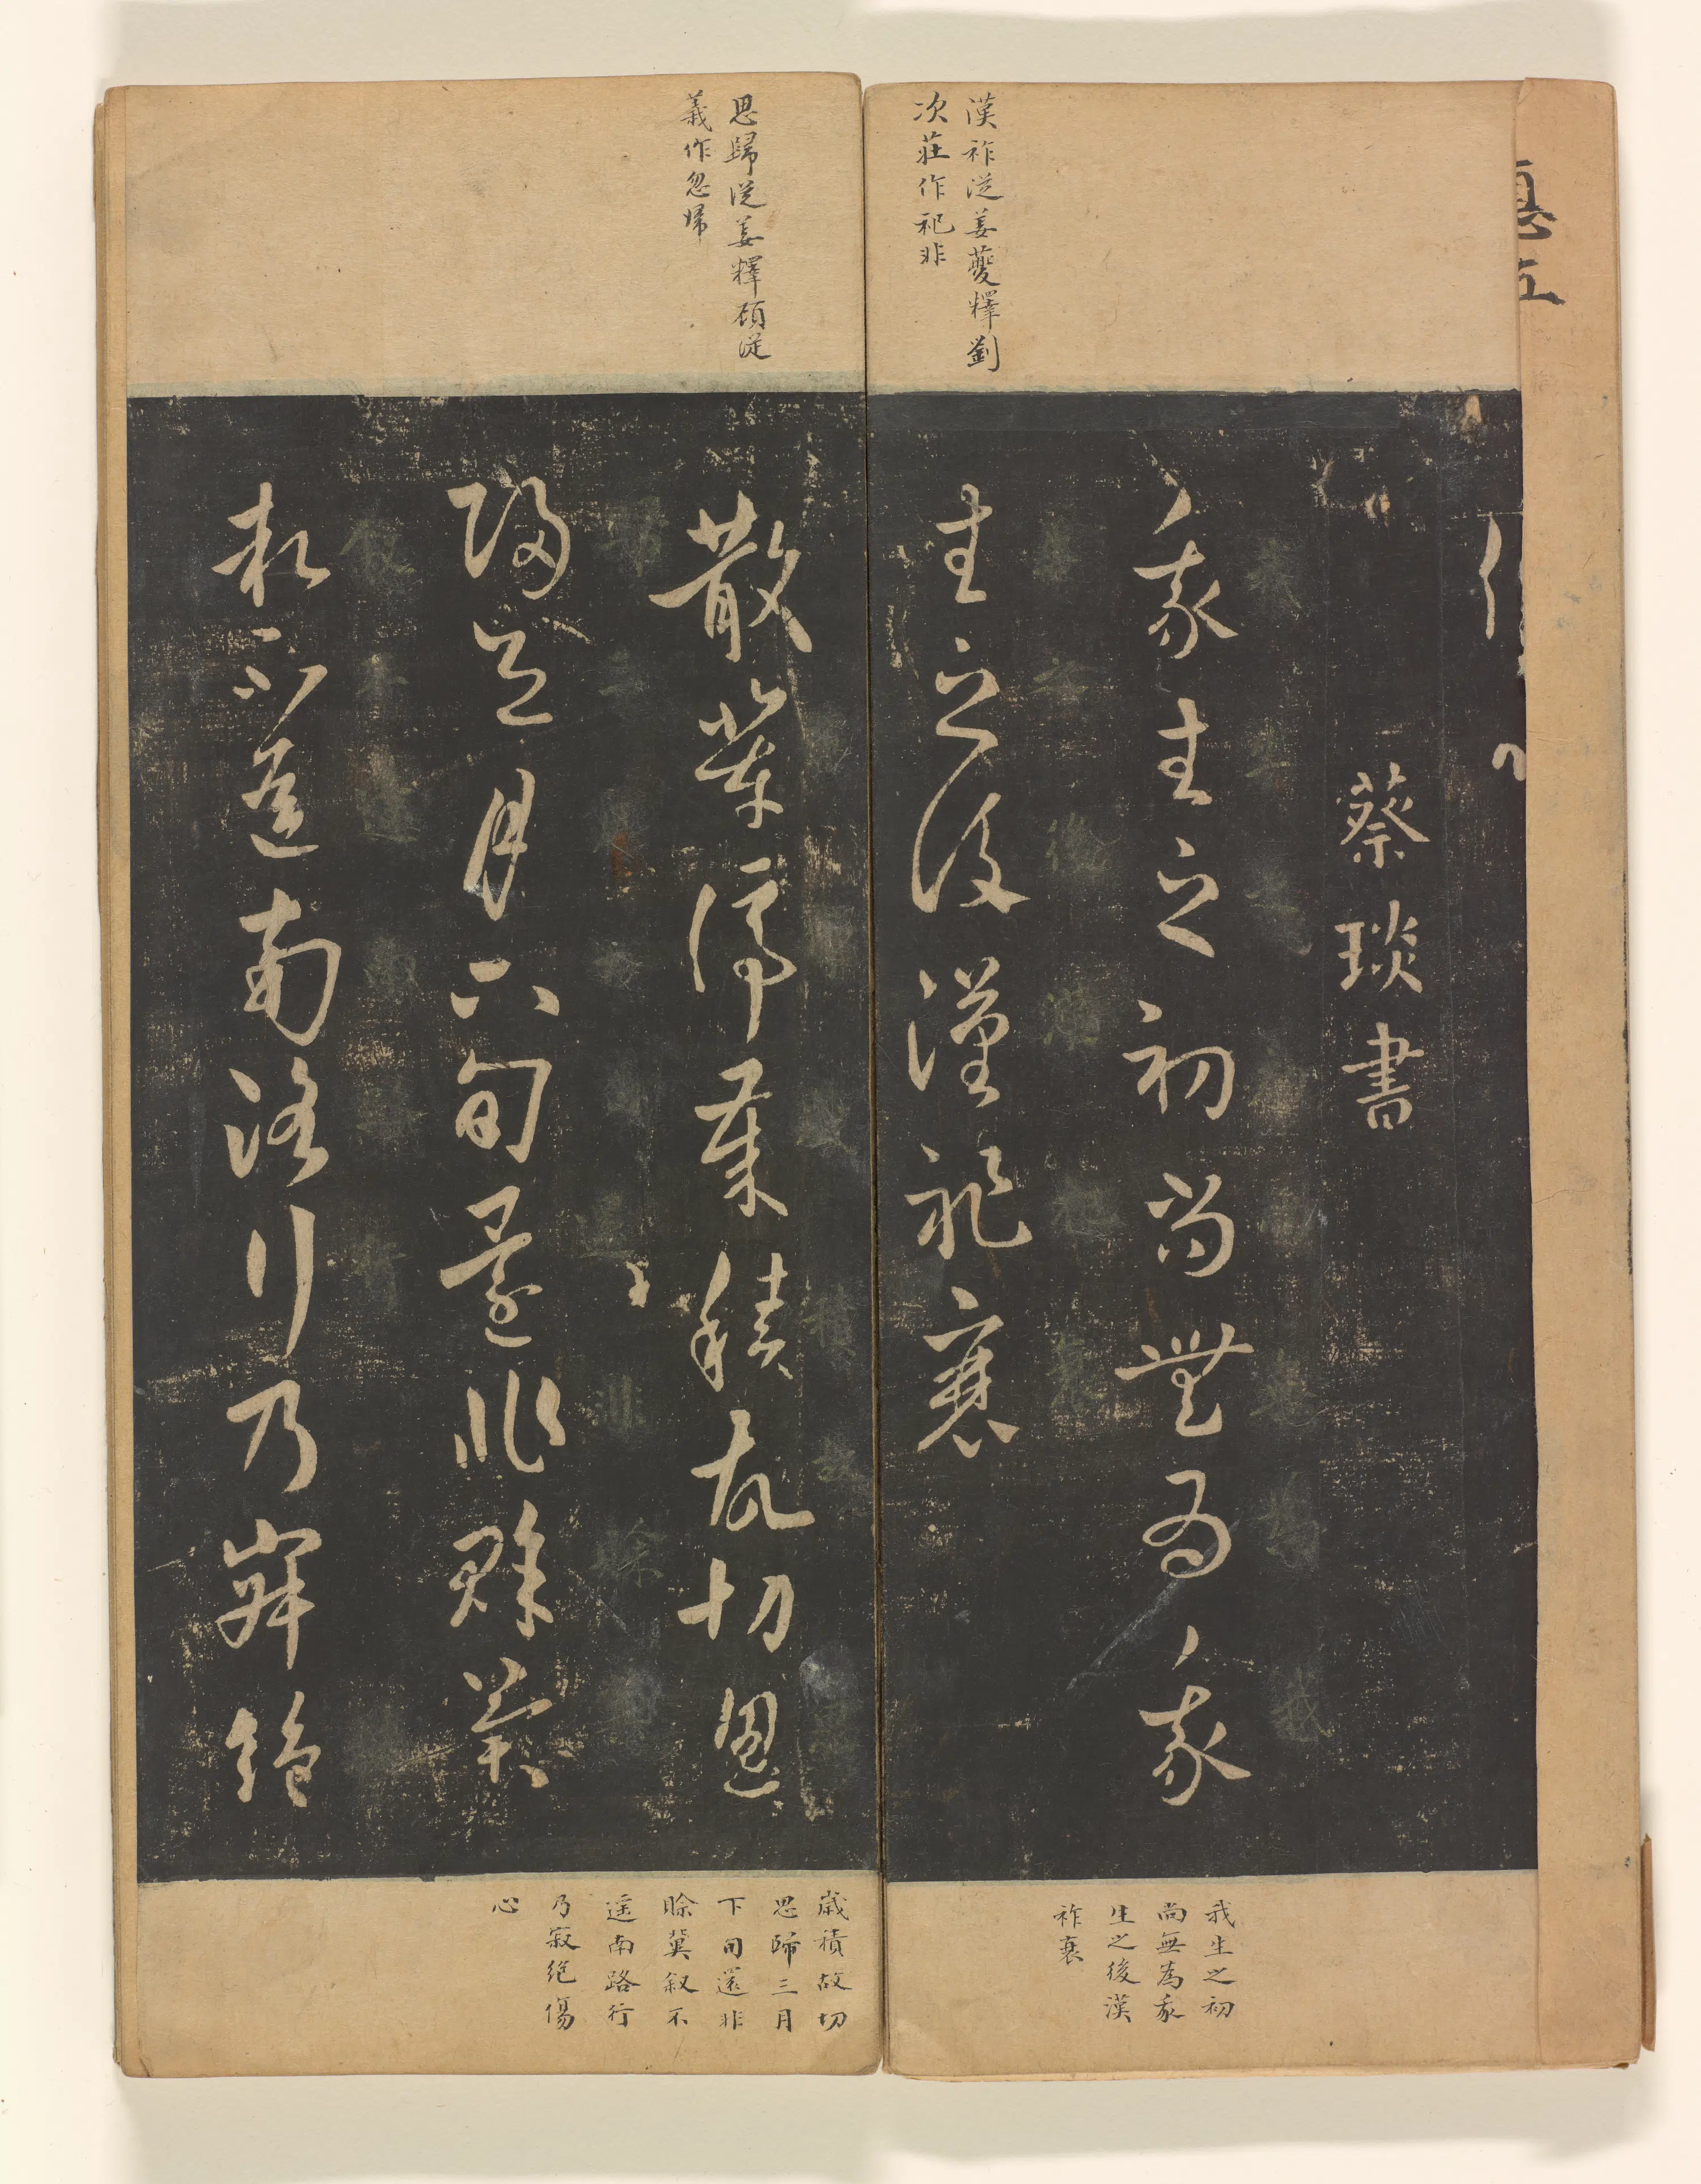 漢祚從姜夔釋劉
次莊作祀非
蔡琰書
我生之初尚無為我
生之後漢祚衰
我生之初
尚無為我
生之後漢
祚衰
思歸從姜釋顧從
義作忽歸
散停歲積故切思
歸三月下旬還非賒冀
敘不遥南路行乃寂絕
歲積故切
思歸三月
下旬還非
賒冀叙不
遥南路行
乃寂絕傷
心